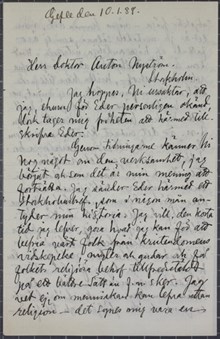 Gefle den 10.1.89.
Herr Doktor Anton Nyström.
Stockholm.
Jag hoppas, Ni ursäktar, att
jag, ehuru för Eder personligen okänd,
dock tager mig friheten att härmed till-
skrifva Eder.
Genom tidningarne känner Ni
nog något om den verksamhet, jag
börjat och som det är min mening att
fortsätta. Jag sänder Eder härmed ett
Stockholmsblad, som i någon mån an-
tyder min historia. Jag vill, den korta
tid jag lefver, göra hvad jag kan för att
befria vårt folk från kristendomens
vidskepelse, myter och gudar och få
folkets religiösa behof tillfredsstäldt
på ett bättre sätt än f.n. sker. Jag
vet ej om menniskan kan lefva utan
religion — det synes mig vara en